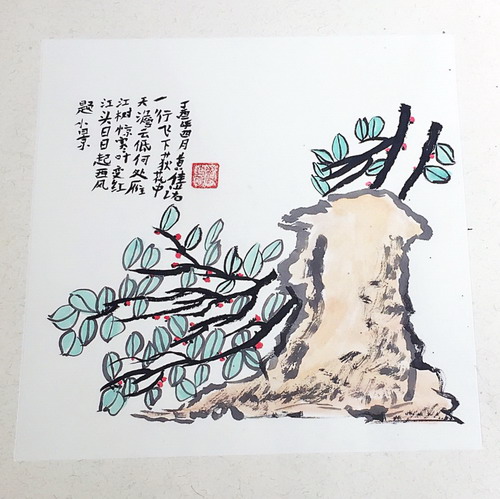 题小景
江头日日起西风
江树惊寒叶变红
天澹云低何处雁
一行飞下荻花中
丁酉年四月